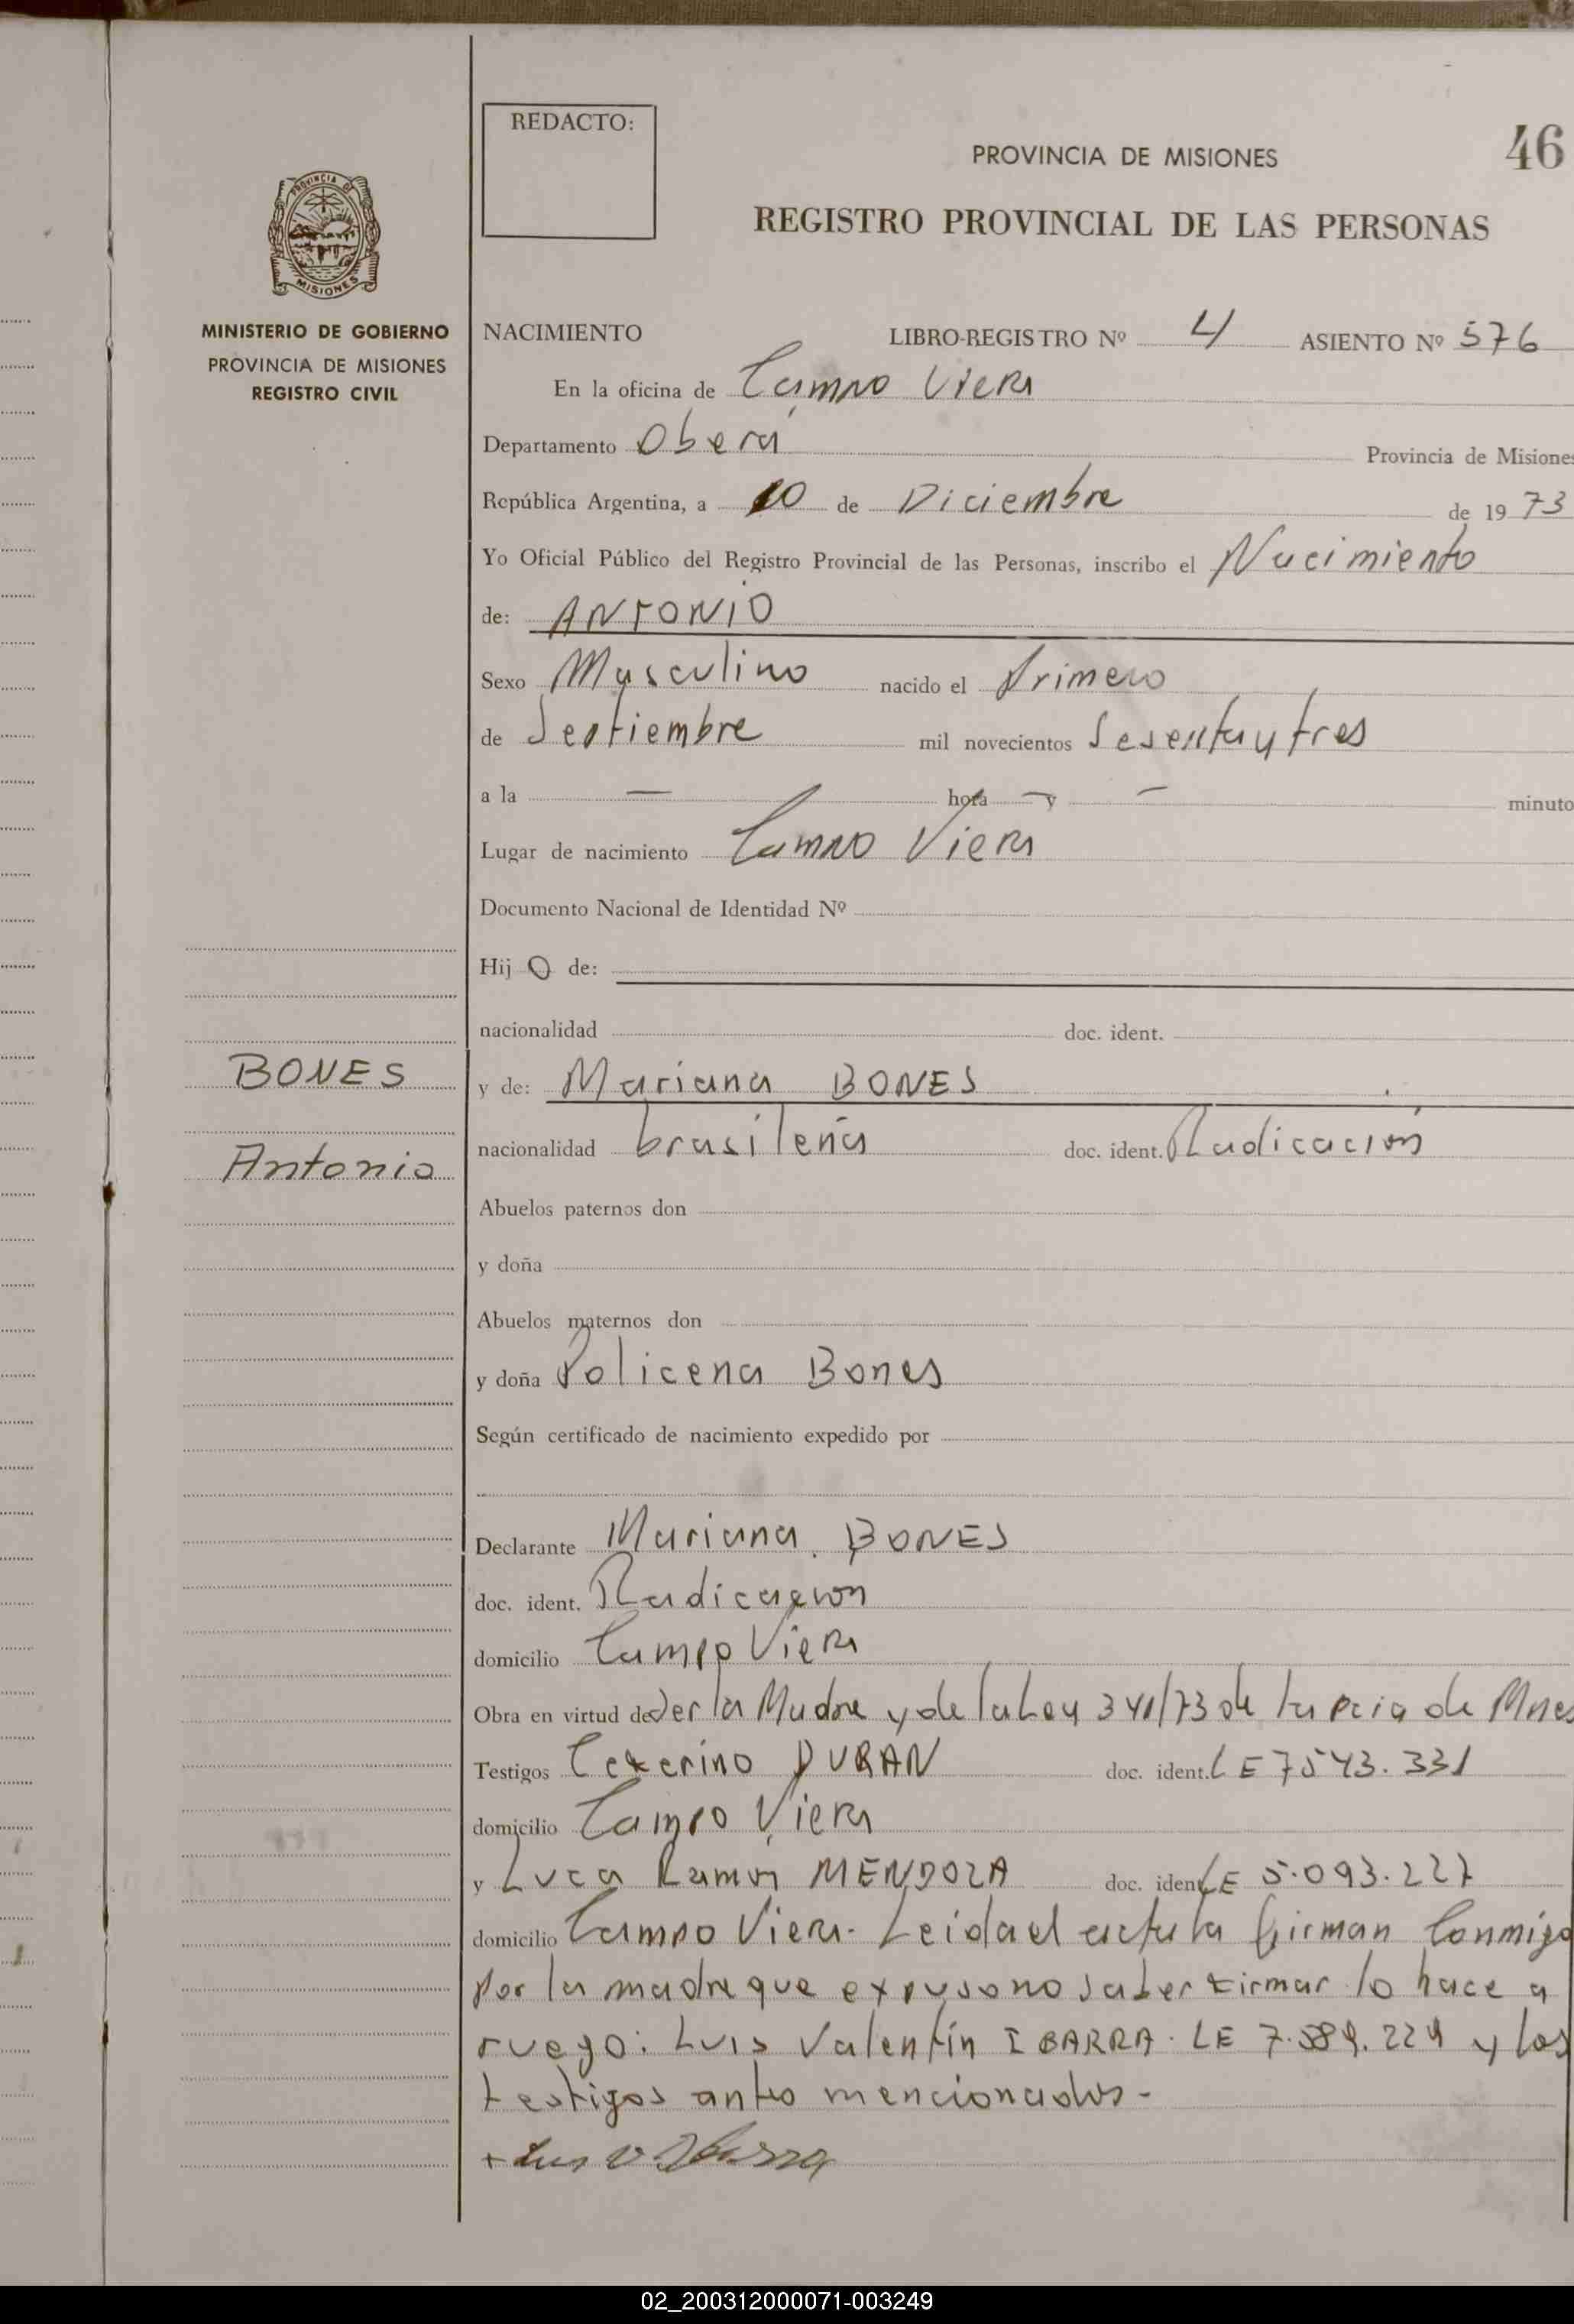 REDACTO:
PROVINCIA DE MISIONES
46
REGISTRO PROVINCIAL DE LAS PERSONAS
PROVINCIA DE
MISIONES
MINISTERIO DE GOBIERNO
PROVINCIA DE MISIONES
REGISTRO CIVIL
NACIMIENTO LIBRO-REGISTRO Nº 4 ASIENTO Nº 576
En la oficina de Campo Viera
Departamento Oberá Provincia de Misiones
República Argentina, a 10 de Diciembre de 1973
Yo Oficial Público del Registro Provincial de las Personas, inscribo el Nacimiento
de: ANTONIO
Sexo Masculino nacido el Primero
de Septiembre mil novecientos Sesenta y tres
a la — hora — y — minuto
Lugar de nacimiento Campo Viera
Documento Nacional de Identidad Nº
Hij o de:
nacionalidad doc. ident.
BONES
y de: Mariana BONES
nacionalidad brasileña doc. ident. Radicación
Antonio
Abuelos paternos don
y doña
Abuelos maternos don
y doña Policena Bones
Según certificado de nacimiento expedido por
Declarante Mariana BONES
doc. ident. Radicación
domicilio Campo Viera
Obra en virtud de ser la Madre y de la Ley 341/73 de la Pcia de Mnes
Testigos DURAN doc. ident. LE 7543.331
domicilio Campo Viera
y Luca Ramón MENDOZA doc. ident. LE 5.093.227
domicilio Campo Viera. Leida el acta la firman Conmigo
Por la madre que expuso no saber firmar lo hace a
ruego: Luis Valentín IBARRA. LE 7.589.224 y los
testigos antes mencionados-
+ Luis V Ibarra
02_200312000071-003249